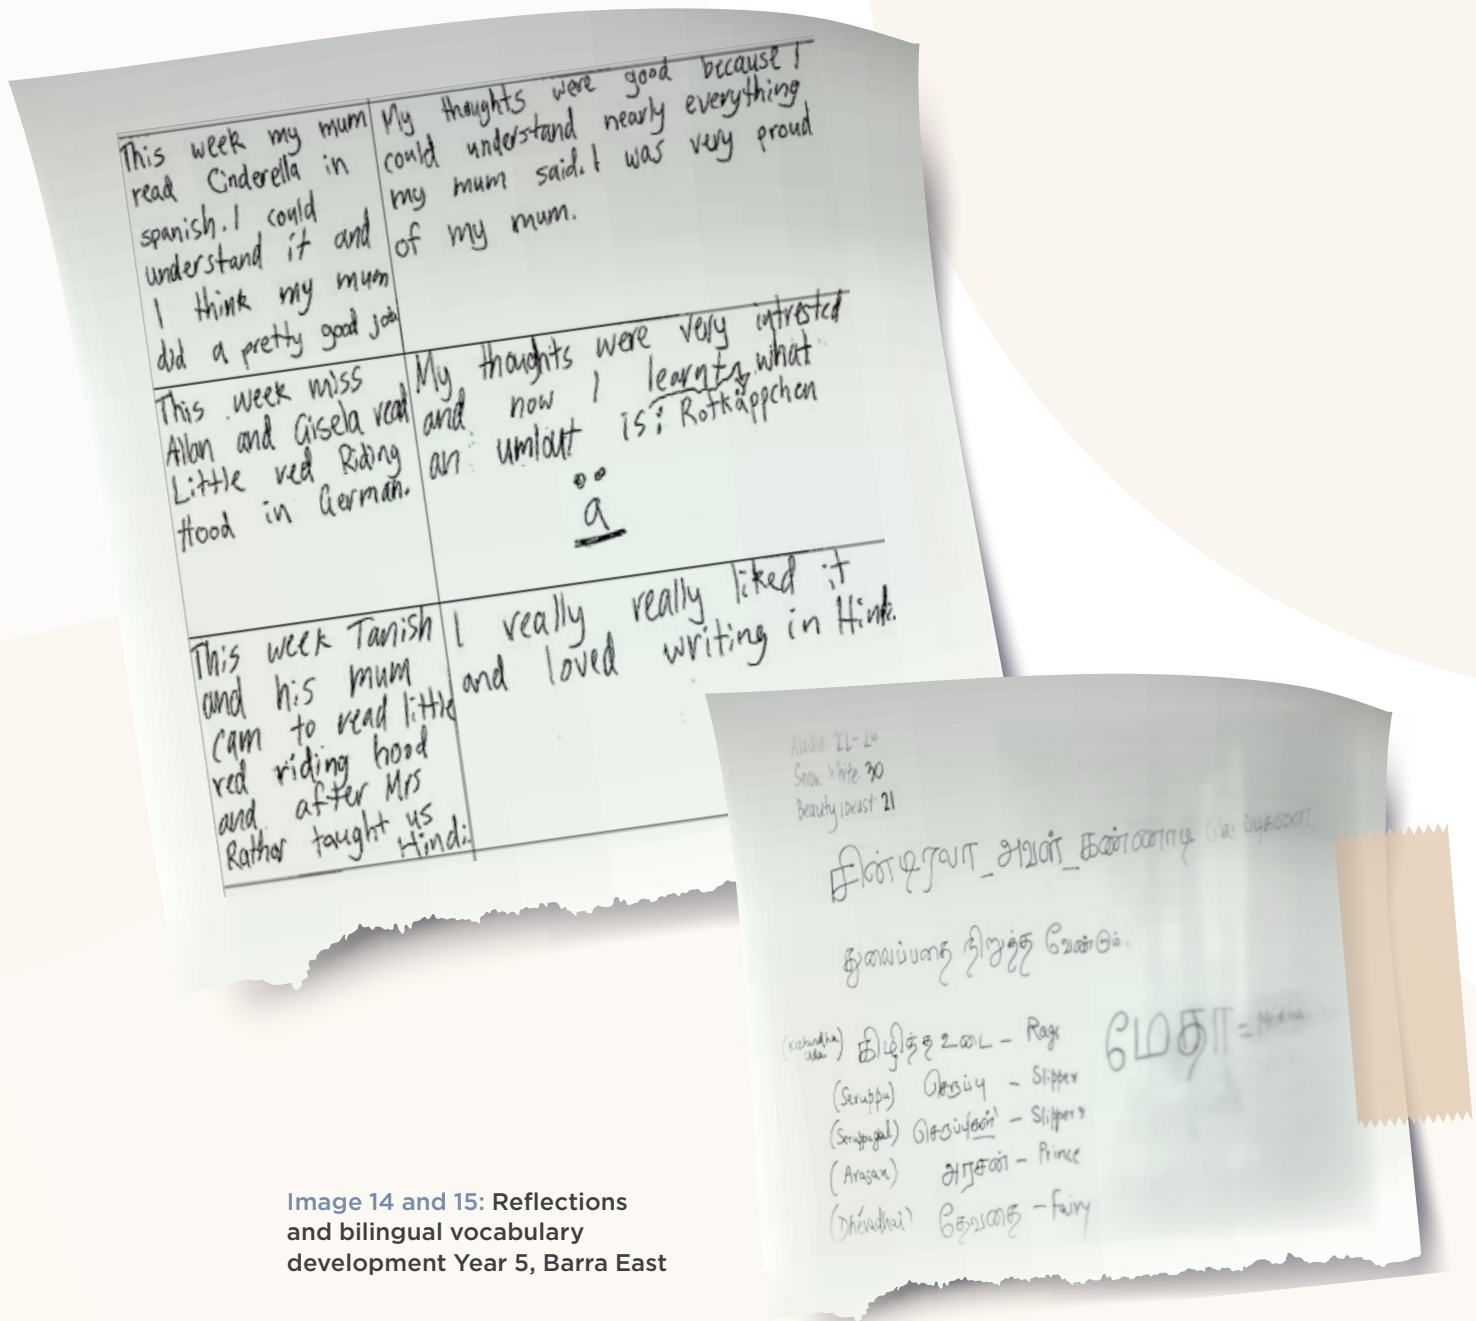 This week my mum
read Cinderella in
spanish. I could
understand it and
I think my mum
did a pretty good job
My thoughts were good because I
could understand nearly everything
my mum said. I was very proud
of my mum.
This week miss
Allan and Gisela read
Little red Riding
Hood in German.
My thoughts were very intrested
and now I learnt what
an umlout is: Rotkäppchen
ä
This week Tanish
and his mum
cam to read little
red riding hood
and after Mrs
Rathor taught us
Hindi.
I really really liked it
and loved writing in Hindi.
Aladin: 21-26
Snow White: 30
Beauty 21
சின்டிரலா_அவள்_கண்ணாடி
துலைப்பதை நிறுத்த வேண்டும்.
கிழித்த உடை – Rags
(Seruppu) செருப்பு – Slipper
(Seruppugal) செருப்புகள் – Slippers
(Arasan) அரசன் – Prince
(Dhévadhai) தேவதை – fairy
மேதா =
Image 14 and 15: Reflections
and bilingual vocabulary
development Year 5, Barra East